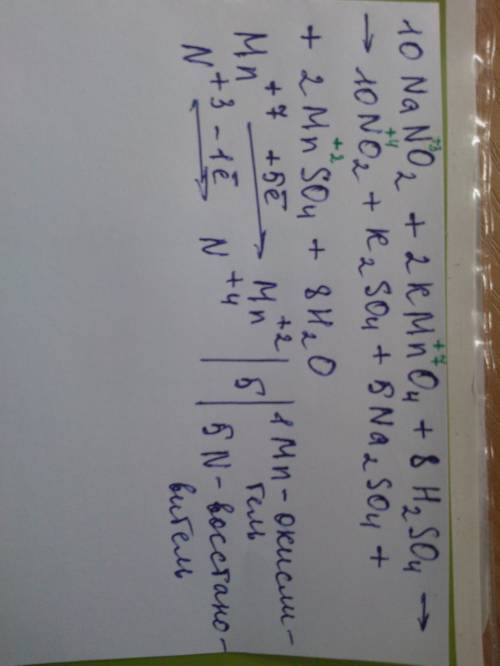 10NaNO₂ + 2KMnO₄ + 8H₂SO₄ →
+3 +7
→ 10NO₂ + K₂SO₄ + 5Na₂SO₄ +
+4
+ 2MnSO₄ + 8H₂O
+2
Mn⁺⁷ +5ē → Mn⁺² | 5 | 1 Mn - окисли-
тель
N⁺³ - 1ē → N⁺⁴ | | 5 N - восстано-
витель